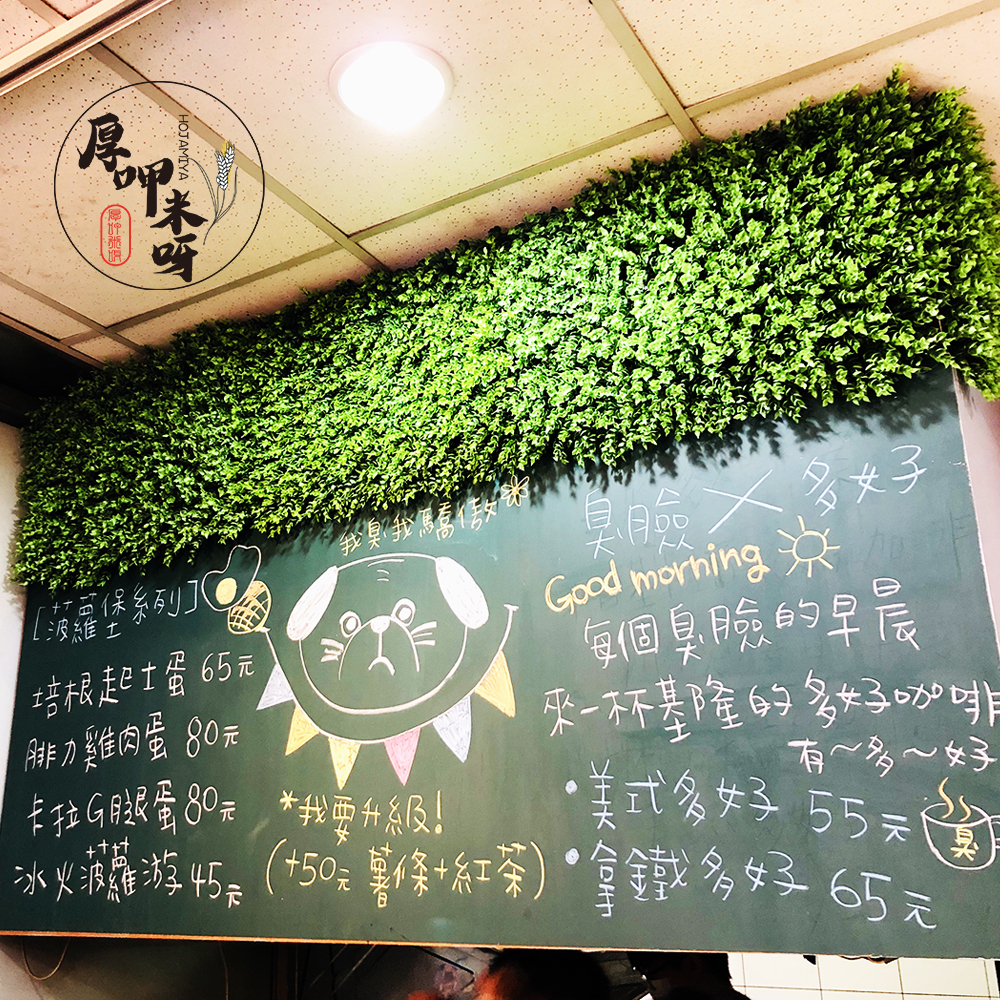 厚呷米呀
HOJAMIYA
我臭我驕傲
[菠蘿堡系列]
培根起士蛋 65元
腓力雞肉蛋 80元
卡拉G腿蛋 80元
冰火菠蘿游 45元
*我要升級!
(+50元 薯條+紅茶)
臭臉×多好
Good morning
每個臭臉的早晨
來一杯基隆的多好咖啡
有~多~好
•美式多好 55元
•拿鐵多好 65元
臭